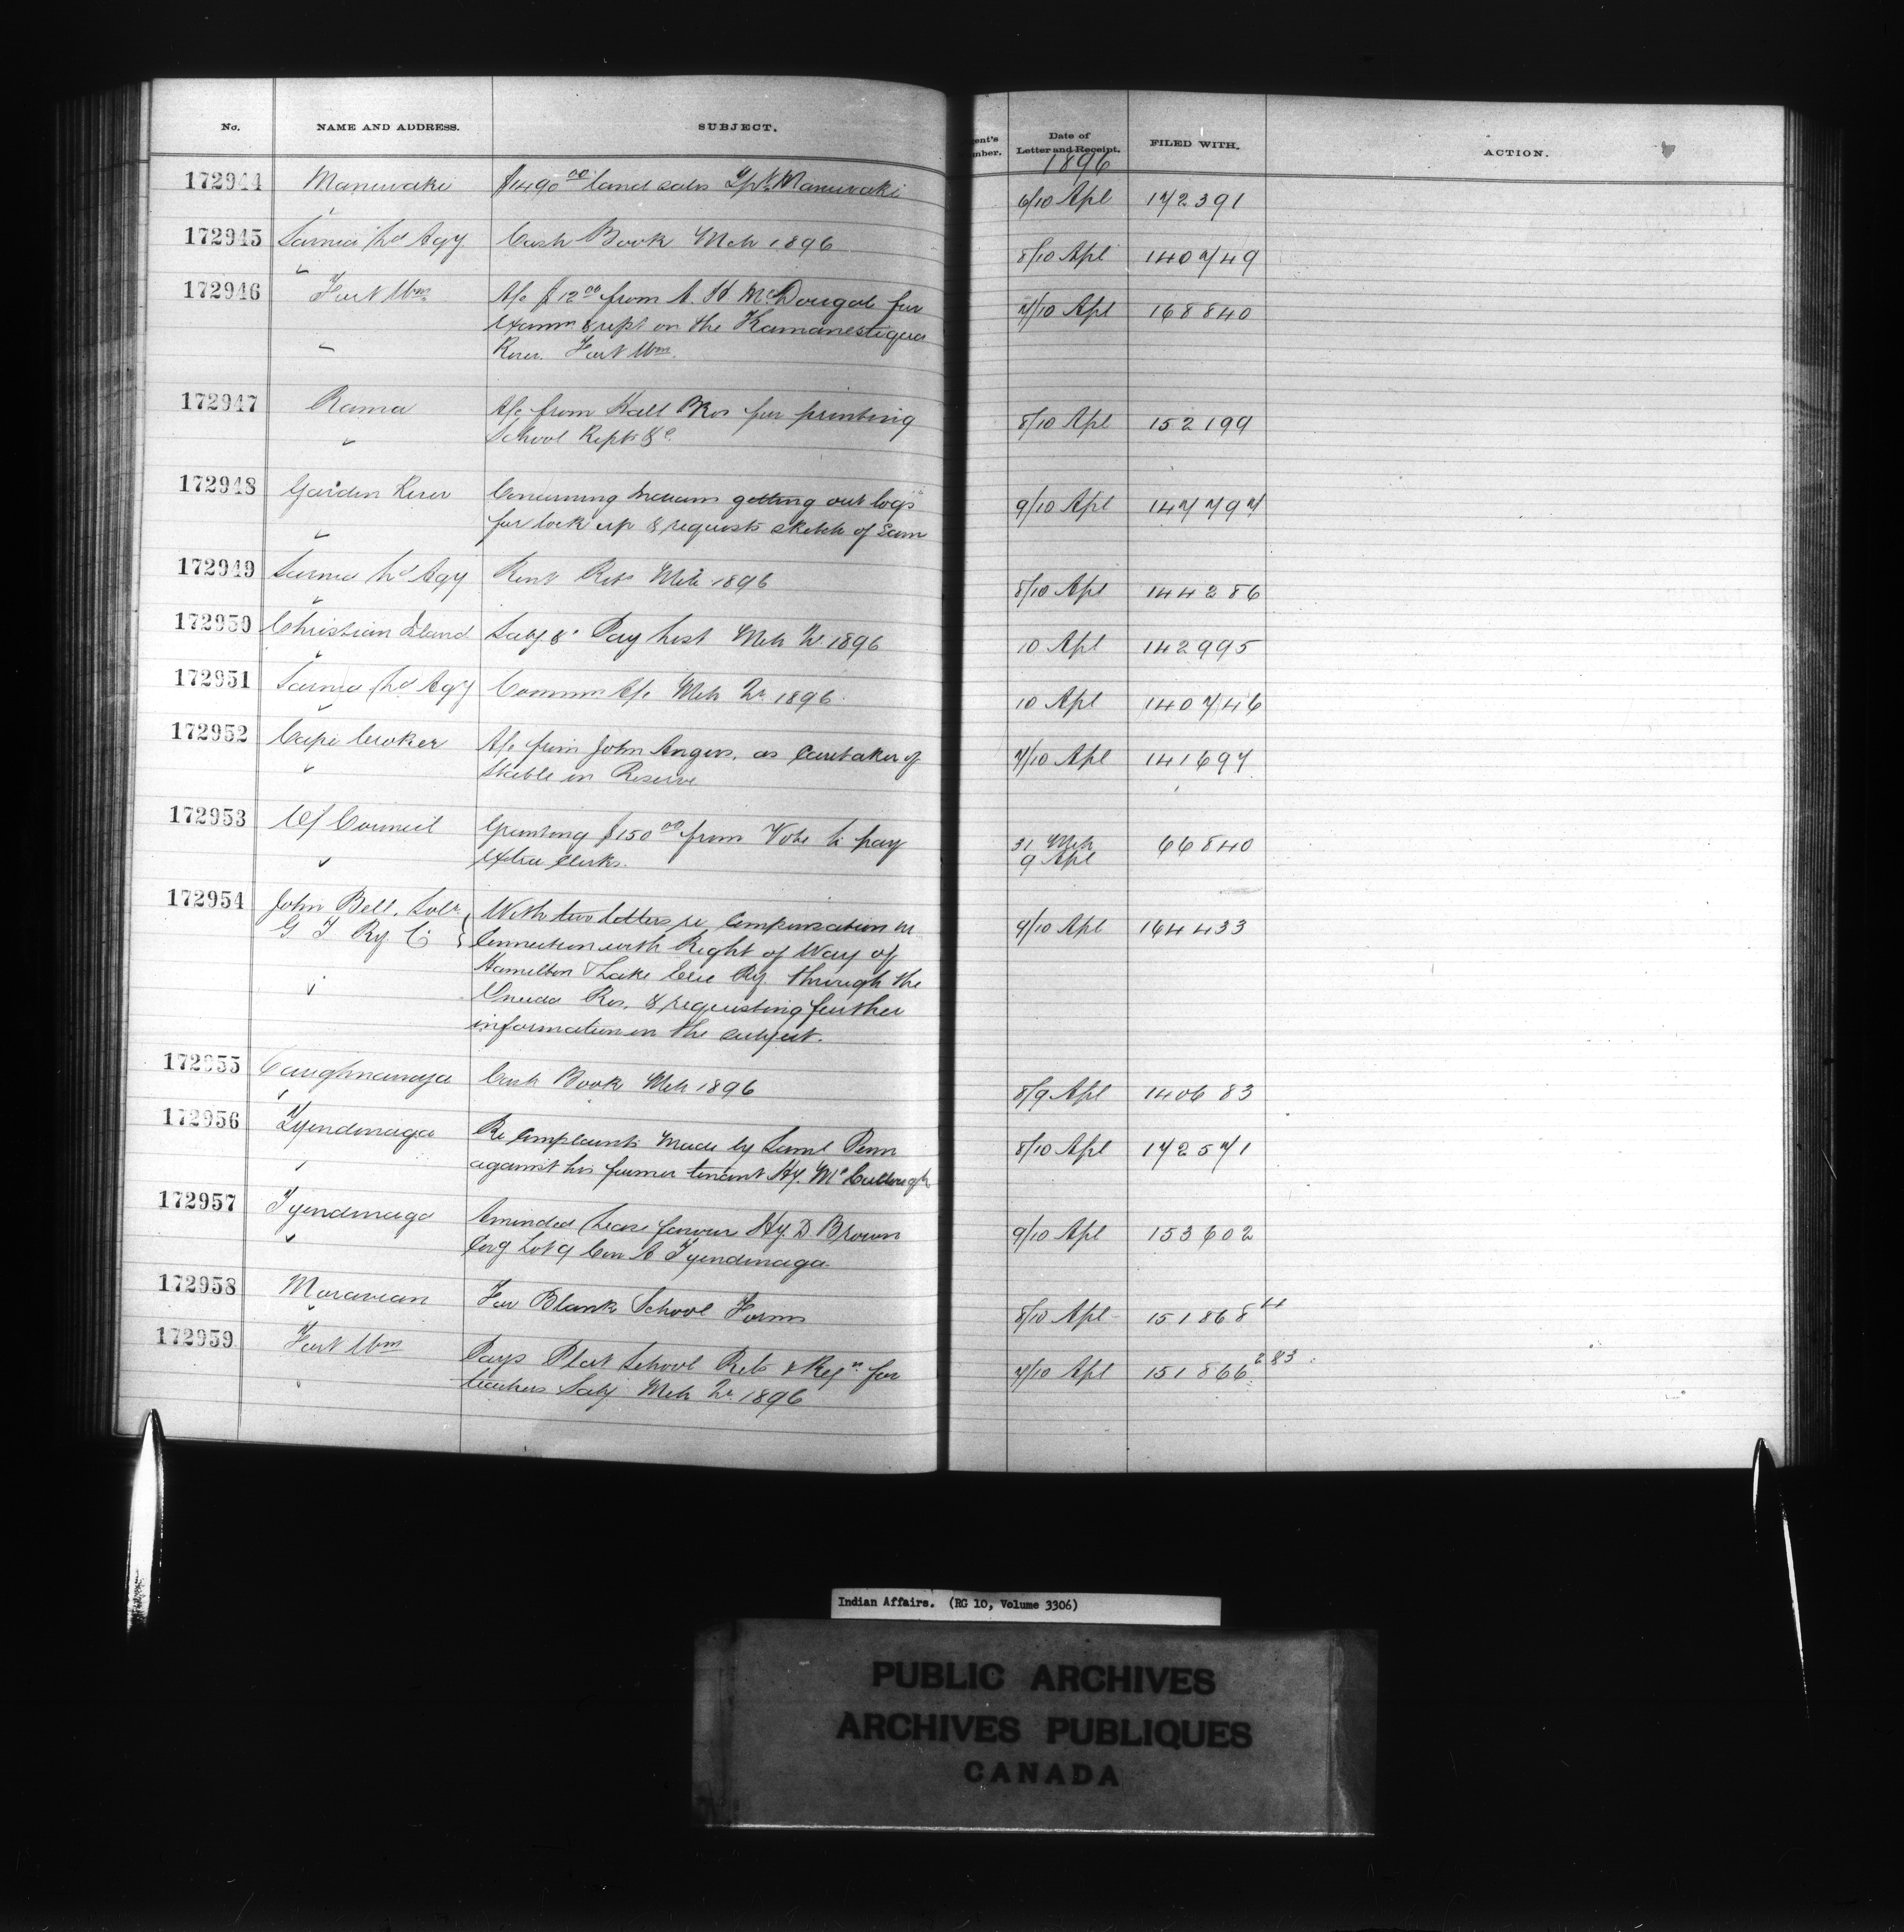 No. NAME AND ADDRESS. SUBJECT.
172944 Maniwaki $1490 00 land sales Tp. Maniwaki
172945 Sarnia Ld Agy Cash Book Mch 1896
172946 Fort Wm A/c $12 00 from A. H. McDougal for
examn & rept on the Kamanestiqua
River. Fort Wm.
172947 Rama A/c from Hall Bros for printing
School Repts &c
172948 Garden River Concerning Indians getting out logs
for lock up & requests sketch of same
172949 Sarnia Ld Agy Rent Rets Mch 1896
172950 Christian Island Saly &c Pay List Mch Qr. 1896
172951 Sarnia Ld Agy Commn A/c Mch Qr 1896
172952 Cape Croker A/c from John Angus, as Caretaker of
Stable on Reserve
172953 Of Council Granting $150 00 from Vote to pay
extra clerks.
172954 John Bell, Solr With two letters re compensation in
G T Ry Co connection with Right of Way of
Hamilton & Lake Erie Ry. through the
Oneida Res. & requesting further
information on the subject.
172955 Caughnawaga Cash Book Mch 1896
172956 Tyendinaga Re complaints made by Saml Penn
against his former tenant Hy. McCullough
172957 Tyendinaga Amended Lease favour Hy. D. Brown
Covg Lot 9 Con A Tyendinaga.
172958 Moravian For Blank School Forms
172959 Fort Wm Pays Plat School Rets & Reqn for
teachers Saly Mch Qr. 1896
ent's
mber.
Date of
Letter and Receipt. FILED WITH. ACTION.
1896
6/10 Apl 172391
8/10 Apl 140749
7/10 Apl 168840
8/10 Apl 152199
9/10 Apl 147797
8/10 Apl 144286
10 Apl 142995
10 Apl 140746
7/10 Apl 141697
31 Mch 66840
9 Apl
9/10 Apl 164433
8/9 Apl 140683
8/10 Apl 172571
9/10 Apl 153602
8/10 Apl 151868
7/10 Apl 151866 283
Indian Affairs. (RG 10, Volume 3306)
PUBLIC ARCHIVES
ARCHIVES PUBLIQUES
CANADA